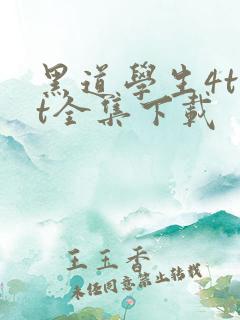 黑道學生4t
t全集下載
王玉香
未经同意禁止转载